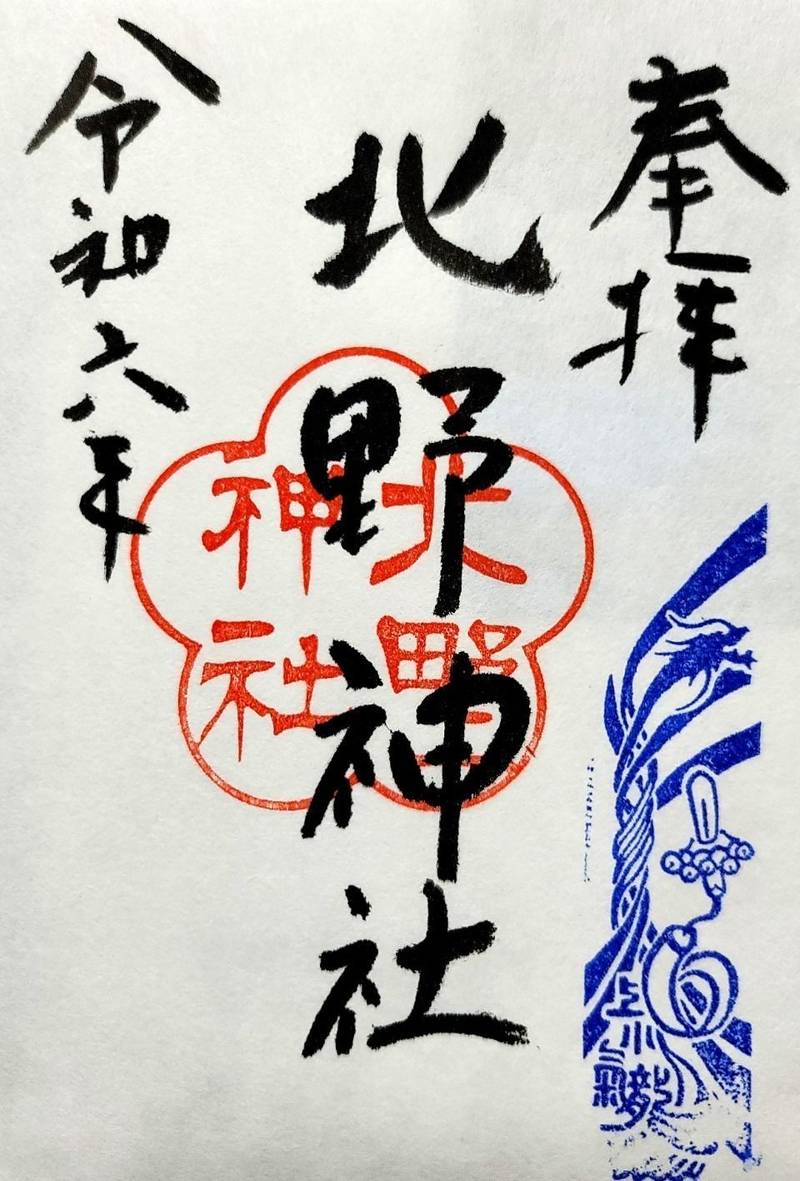 奉拝
北野神社
北野
神社
令和六年